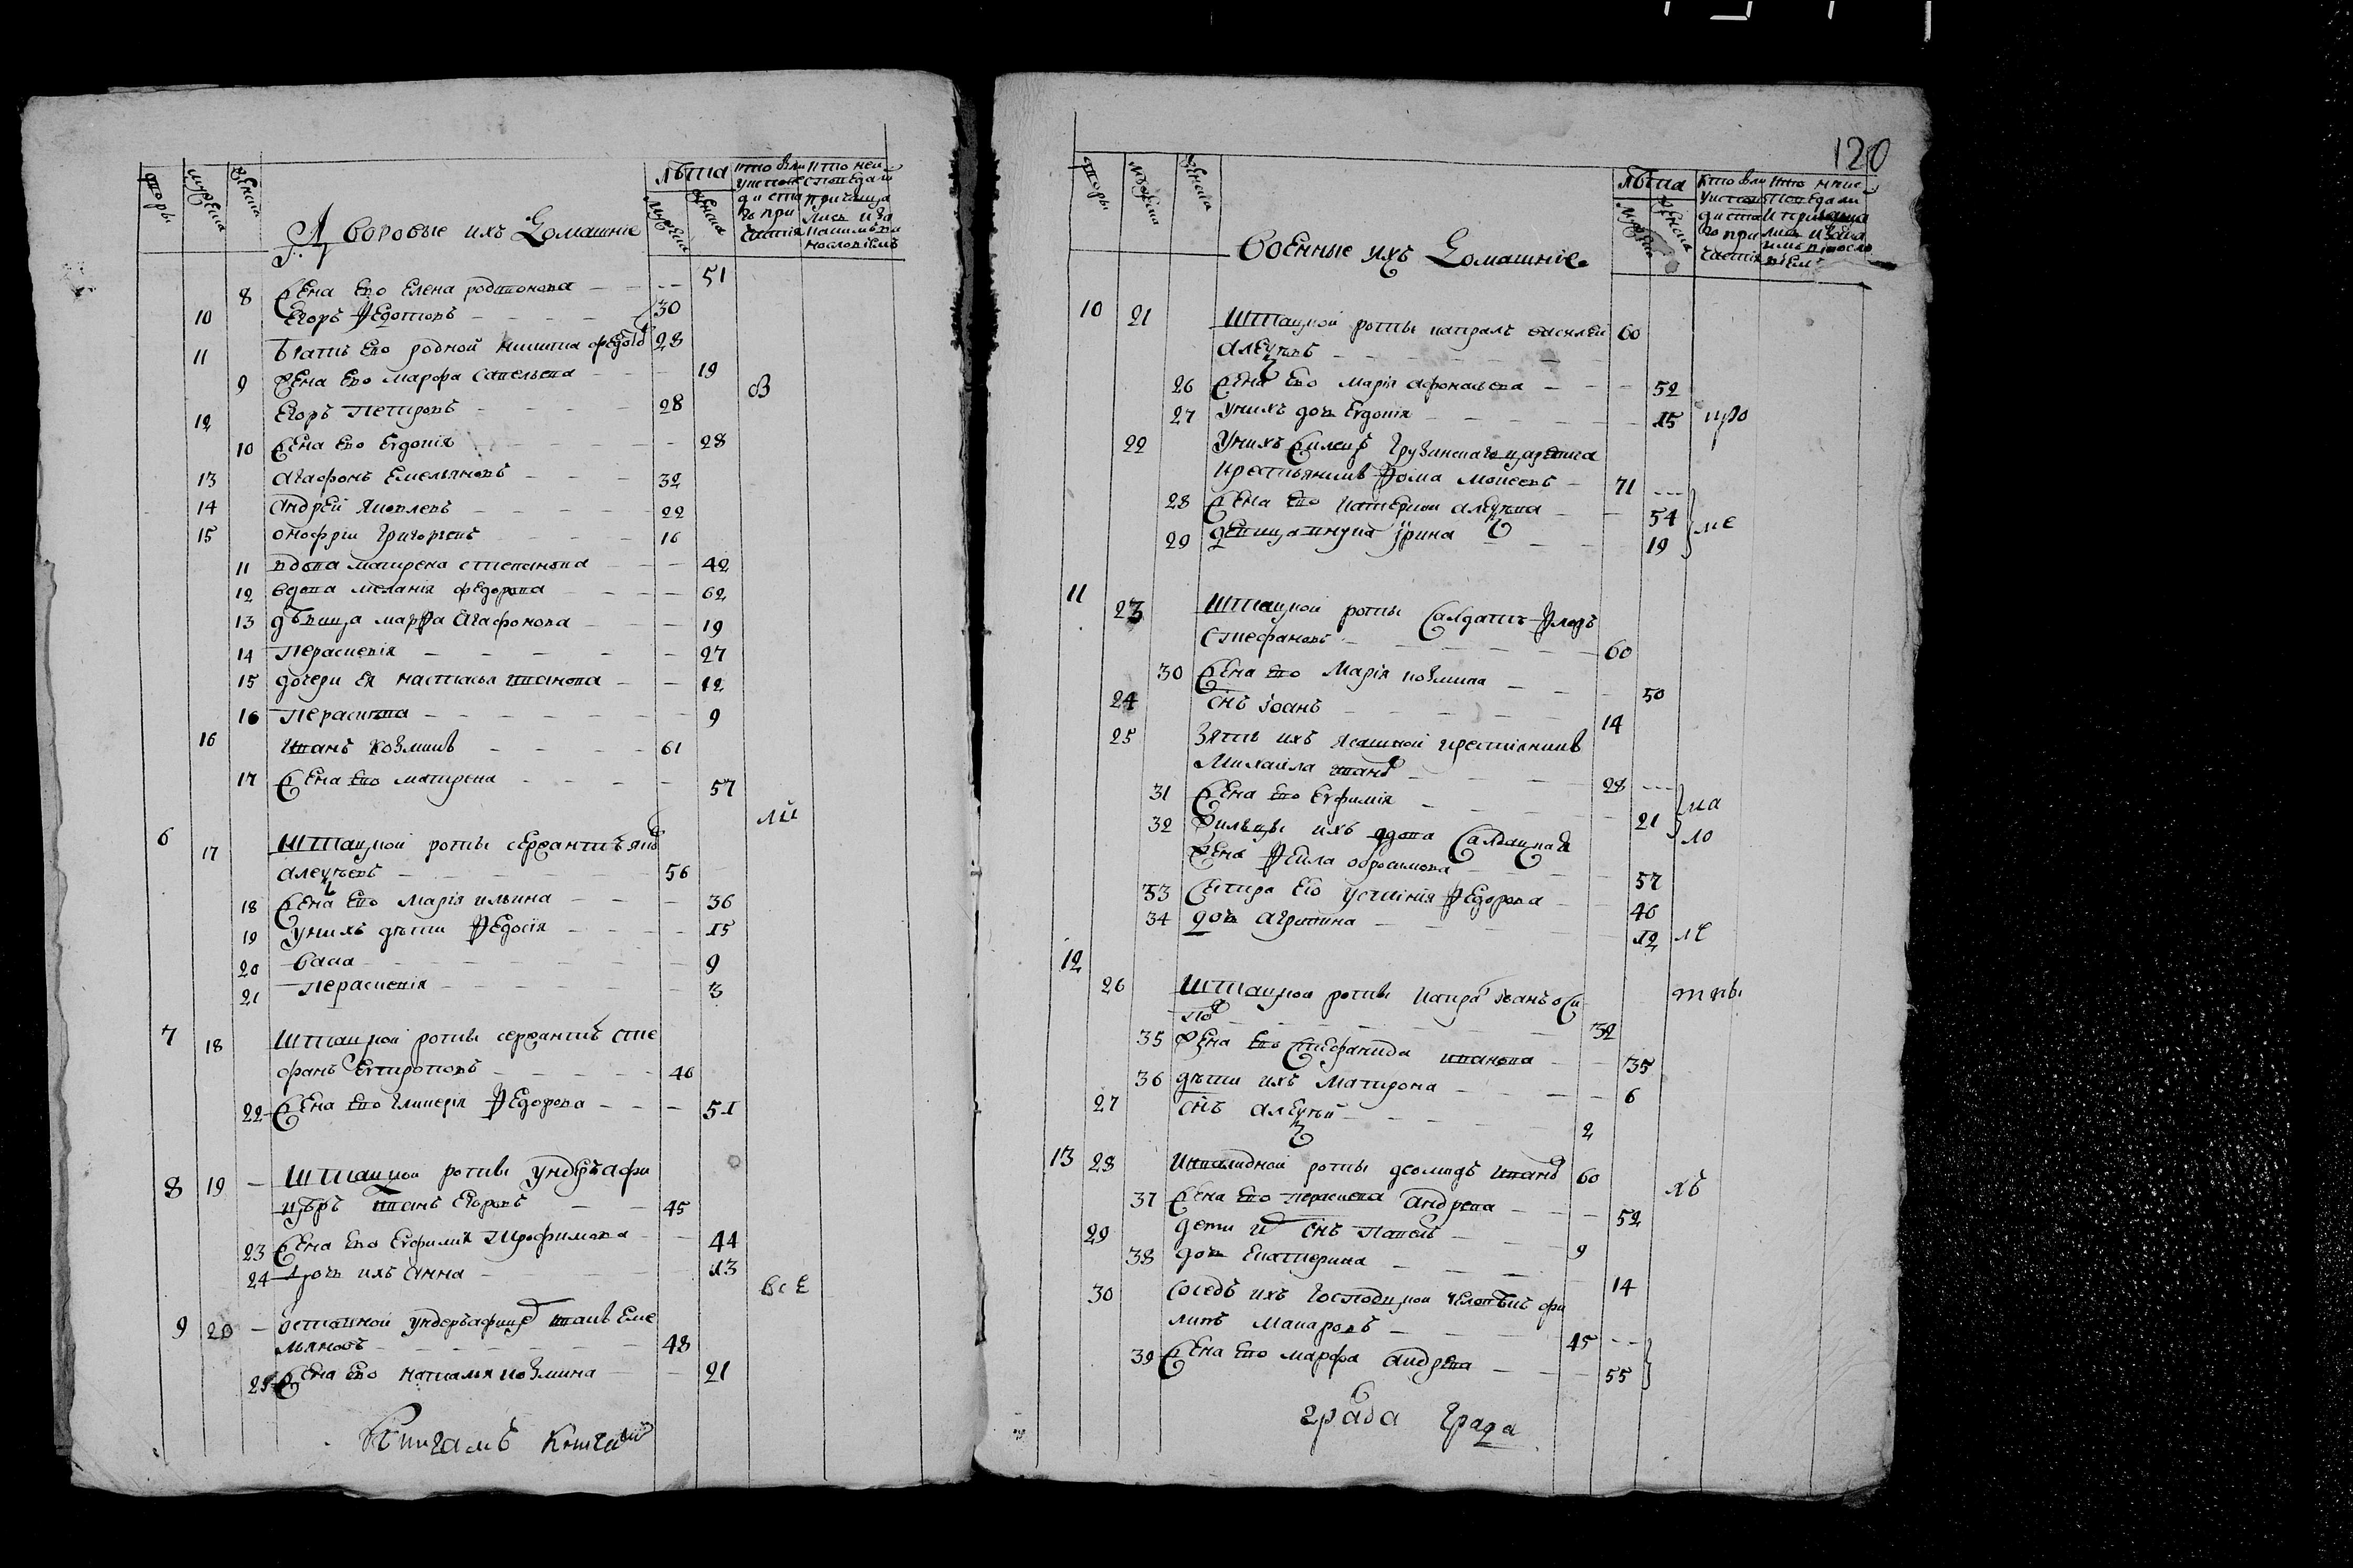 дворы
мужеска
женска
Дворовые ихъ Домашніе
лѣта
мужеска
женска
8 жена Его Елена родионова 51
10 Егоръ Федотовъ 30
11 братъ Его родной никита 28
9 жена Его марфа савельева 19
12 Егоръ петровъ 28
10 жена Его Евдокія 28
13 агафонъ Емельяновъ 32
14 андрей яковлевъ 22
15 онофріи григорьевъ 16
11 вдова матрена степанова 42
12 вдова меланія федорова 62
13 дѣвица марфа агафонова 19
14 Парасковія 27
15 дочери Ея настасья иванова 12
16 парасковья 9
16 иванъ козминъ 61
17 жена Его матрена 57
6 17 Штатной роты сержантъ яковъ
алеѯѣевъ 56
18 жена Его Марія ильина 36
19 У нихъ дѣти Федосія 15
20 васа 9
21 Парасковія 3
7 18 Штатной роты сержантъ сте
фанъ Евтроповъ 46
22 жена Его гликерія Федорова 51
8 19 Штатной роты ундеръафи
цѣръ иванъ Егоровъ 45
23 жена Его Евфимия трофимова 44
24 дочь ихъ анна 13
9 20 отставной ундеръафице иванъ Еме
льяновъ 48
25 жена Его наталья козмина 21
ѳ
ли
все
120
дворы
мужеска
женска
военные ихъ Домашніе
лѣта
мужеска
женска
10 21 Штатной роты капралъ василеи 60
алеѯѣевъ
26 жена Его марія афонасьева 52
27 у нихъ дочь Евдокія 15
22 У нихъ жилецъ грузинскаго царевича
крестьянинъ Фома Моисеевъ 71
28 жена Его катерина алеѯѣева 54
29 девица внука їрина 19
11 23 Штатной роты Салдатъ
стефановъ 60
30 жена Его Марія козмина 50
24 снъ іоанъ 14
25 зять ихъ ясашной крестьянинъ
Михаила ивановъ 28
31 жена Его Евфимія 21
32 жилецы ихъ вдова Салдацкая
жена Фекла 57
33 сестра Ею устинія Федорова 46
34 дочь агрипина 12
12
26 Штатной роты капра іоанъ оси
повъ 32
35 жена Его стефанида иванова 35
36 дѣти ихъ Матрона 6
27 снъ алеѯѣй 2
13 28 инвалидной роты деомидъ иванов 60
37 жена Его параскева андреева 52
29 дети их снъ павелъ 9
38 дочь Екатерина 14
30 соседъ ихъ господцкой человѣкъ фи
липъ макаровъ 45
39 жена Его марфа андреева 55
ме
ка
ло
ле
хъ
града града